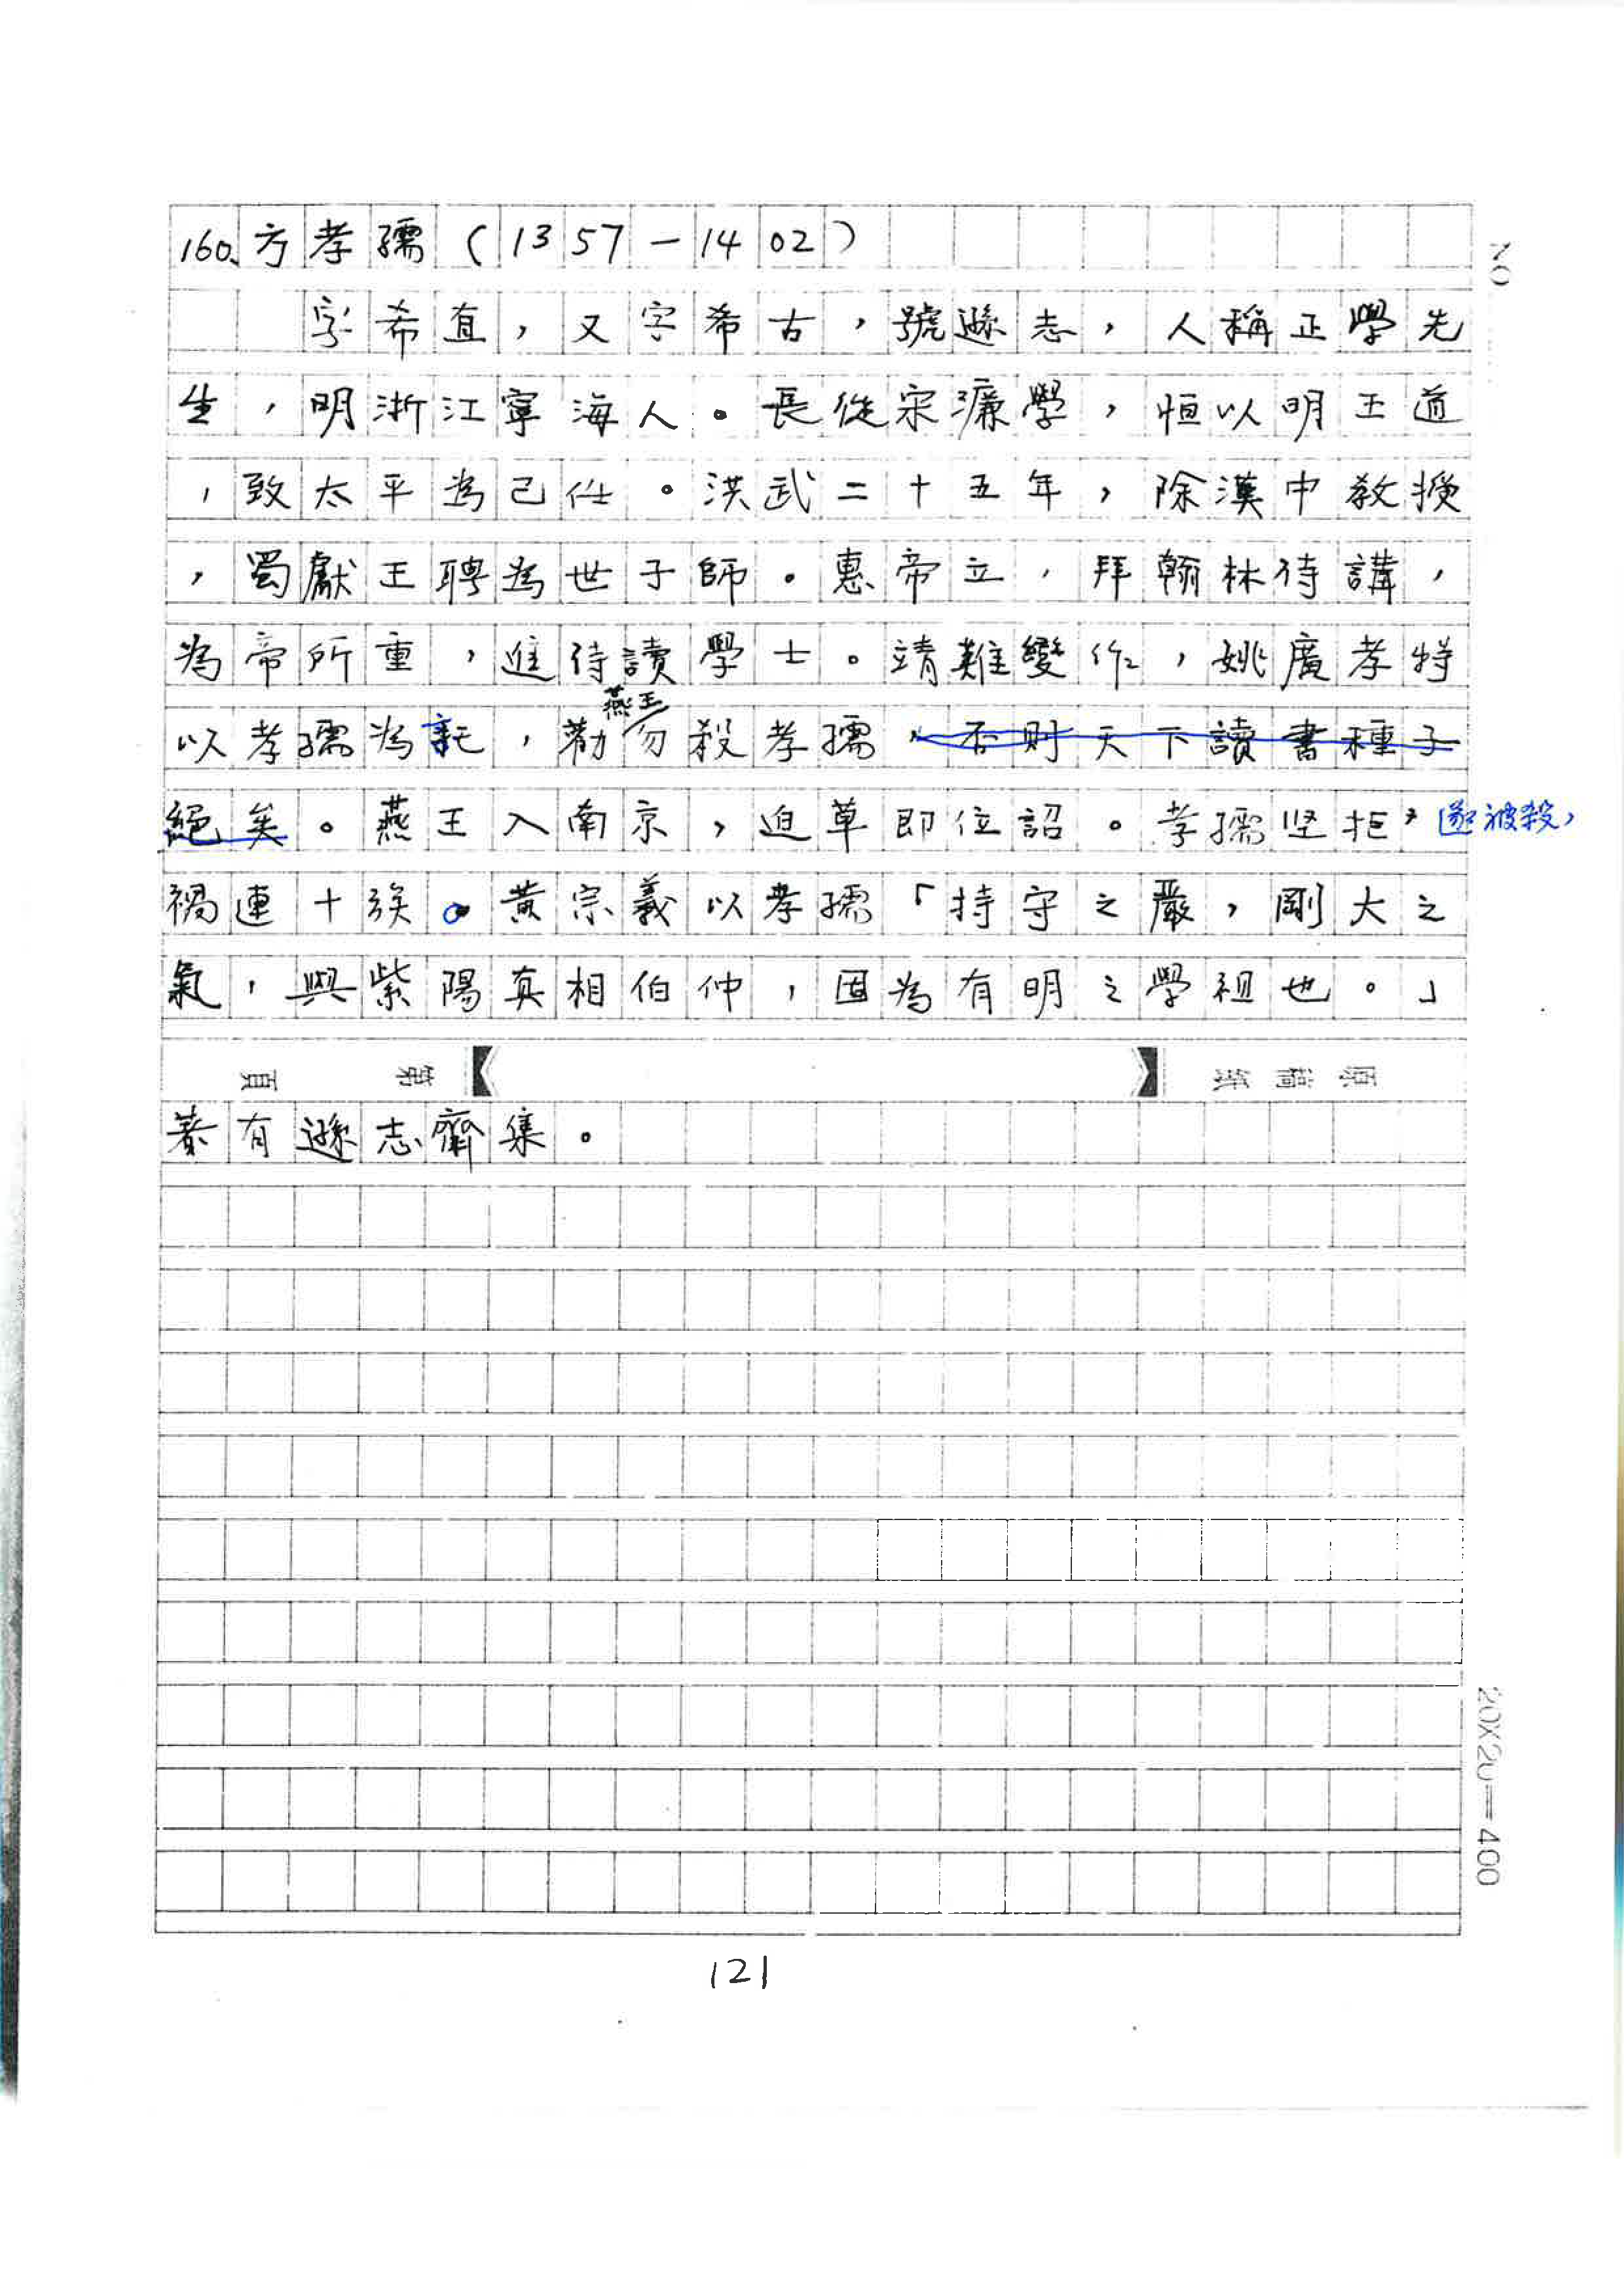 160、方孝孺（1357－1402）
字希直，又字希古，號遜志，人稱正學先
生，明浙江寧海人。長從宋濂學，恒以明王道
，致太平為己任。洪武二十五年，除漢中教授
，蜀獻王聘為世子師。惠帝立，拜翰林侍講，
為帝所重，進侍讀學士。靖難變作，姚廣孝特
以孝孺為託，勸燕王勿殺孝孺，否則天下讀書種子
絕矣。燕王入南京，迫草即位詔。孝孺坚拒，遂被殺，
禍連十族。黃宗羲以孝孺「持守之嚴，剛大之
氣，與紫陽真相伯仲，固為有明之學祖也。」
頁 第 原稿紙
著有遜志齋集。
NO
20X20=400
121